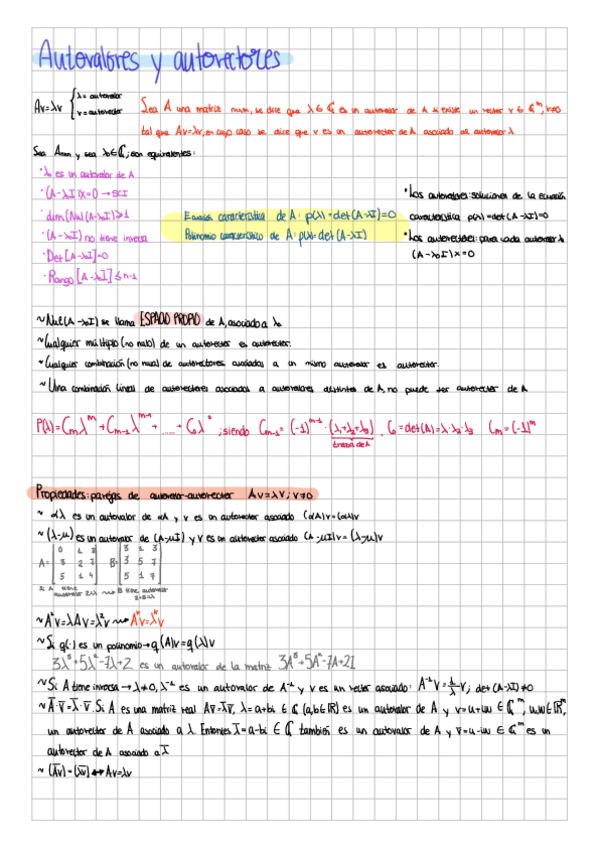 Autovalores y autovectores
Av=λv { λ= autovalor
v = autovector
Sea A una matriz mxm, se dice que λ ∈ ℂ es un autovalor de A si existe un vector v ∈ ℂᵐ, v≠0
tal que Av=λv, en cuyo caso se dice que v es un autovector de A asociado al autovalor λ
Sea Amxm y sea λ₀∈ℂ, son equivalentes:
· λ₀ es un autovalor de A
· (A-λ₀I)x=0 → SCI
· dim(Nul(A-λ₀I))≥1
· (A-λ₀I) no tiene inversa
· Det[A-λ₀I]=0
· Rango[A-λ₀I]≤n-1
Ecuación característica de A: p(λ)=det(A-λI)=0
Polinomio característico de A: p(λ)=det(A-λI)
· Los autovalores: soluciones de la ecuación
característica p(λ)=det(A-λI)=0
· Los autovectores: para cada autovalor λ
(A-λ₀I)x=0
~Nul(A-λ₀I) se llama ESPACIO PROPIO de A, asociado a λ₀
~Cualquier múltiplo (no nulo) de un autovector es autovector.
~Cualquier combinación (no nula) de autovectores asociados a un mismo autovalor es autovector.
~Una combinación lineal de autovectores asociados a autovalores distintos de A, no puede ser autovector de A
P(λ)=Cmλᵐ+Cm-1λᵐ⁻¹+......+C₀λ⁰ ;siendo Cm-1=(-1)ᵐ⁻¹·(λ₁+λ₂+λ₃), C₀=det(A)=λ₁·λ₂·λ₃ Cm=(-1)ᵐ
traza de A
Propiedades: parejas de autovalor-autovector Av=λv; v≠0
~ αλ es un autovalor de αA y v es un autovector asociado (αA)v=(αλ)v
~(λ-μ) es un autovalor de (A-μI) y v es un autovector asociado (A-μI)v=(λ-μ)v
A=[0 1 3
3 2 7
5 1 4] B=[3 1 3
3 5 7
5 1 7]
~A²v=λAv=λ²v ⟿ Aᵏv=λᵏv
~Si q(·) es un polinomio→q(A)v=q(λ)v
3λ³+5λ²-7λ+2 es un autovalor de la matriz 3A³+5A²-7A+2I
~Si A tiene inversa → λ≠0, λ⁻¹ es un autovalor de A⁻¹ y v es un vector asociado: A⁻¹v=1/λ·v; det(A-λI)≠0
~A̅·v̅=λ̅·v̅ Si A es una matriz real Av̅=λ̅v̅, λ=a+bi ∈ ℂ (a,b∈ℝ) es un autovalor de A y v=u+iw ∈ ℂᵐ, u,w∈ℝᵐ,
un autovector de A asociado a λ. Entonces λ̅=a-bi ∈ ℂ también es un autovalor de A y v̅=u-iw ∈ ℂᵐ es un
autovector de A asociado a λ̅
~ (A̅v̅)=(λ̅v̅)↔Av=λv